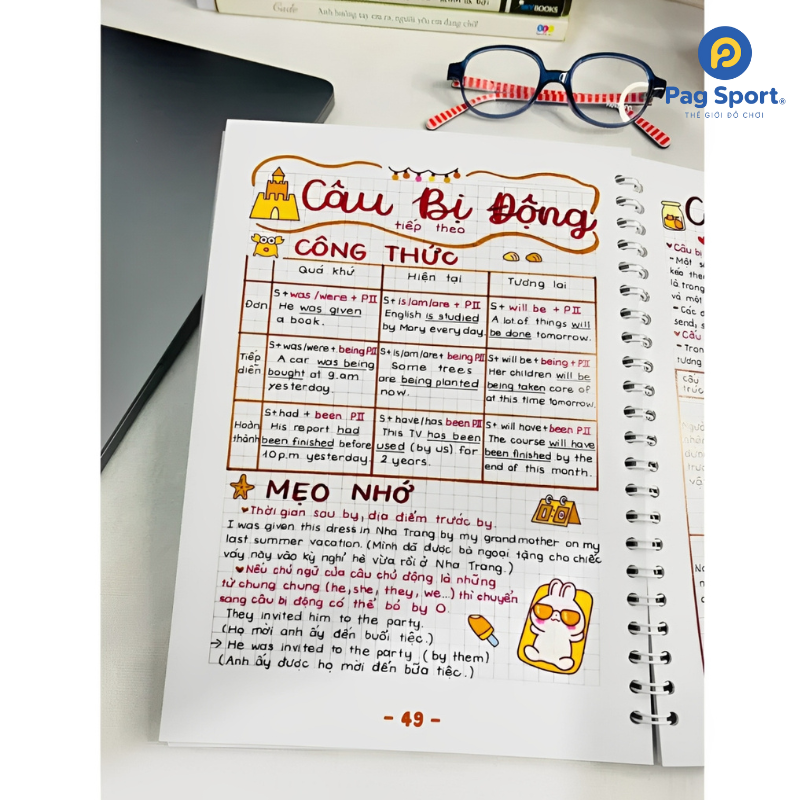 Cade
Anh hướng tay em ra, người yêu em đang chờ!
SKYBOOKS
Pag Sport®
THẾ GIỚI ĐỒ CHƠI
Câu Bị Động
tiếp theo
CÔNG THỨC
Quá khứ
Hiện tại
Tương lai
Đơn
S+was/were + PII
He was given
a book.
S+ is/am/are + PII
English is studied
by Mary every day.
S+ will be + PII
A lot of things will
be done tomorrow.
Tiếp
diễn
S+was/were+ being PII
A car was being
bought at 9.am
yesterday.
S+is/am/are+ being PII
Some trees
are being planted
now.
S+ will be+ being + PII
Her children will be
being taken care of
at this time tomorrow.
Hoàn
thành
S+had + been PII
His report had
been finished before
10p.m yesterday.
S+have/has been PII
This TV has been
used (by us) for
2 years.
S+ will have+been PII
The course will have
been finished by the
end of this month.
MẸO NHỚ
Thời gian sau by, địa điểm trước by.
I was given this dress in Nha Trang by my grandmother on my
last summer vacation. (Mình đã được bà ngoại tặng cho chiếc
váy này vào kỳ nghỉ hè vừa rồi ở Nha Trang.)
Nếu chủ ngữ của câu chủ động là những
từ chung chung (he, she, they, we...) thì chuyển
sang câu bị động có thể bỏ by O.
They invited him to the party.
(Họ mời anh ấy đến buổi tiệc.)
→ He was invited to the party (by them)
(Anh ấy được họ mời đến bữa tiệc.)
- 49 -
C
Câu bị
- Một s
kéo the
là trong
và một
- Các đ
send, s
Cấu
- Tran
tương